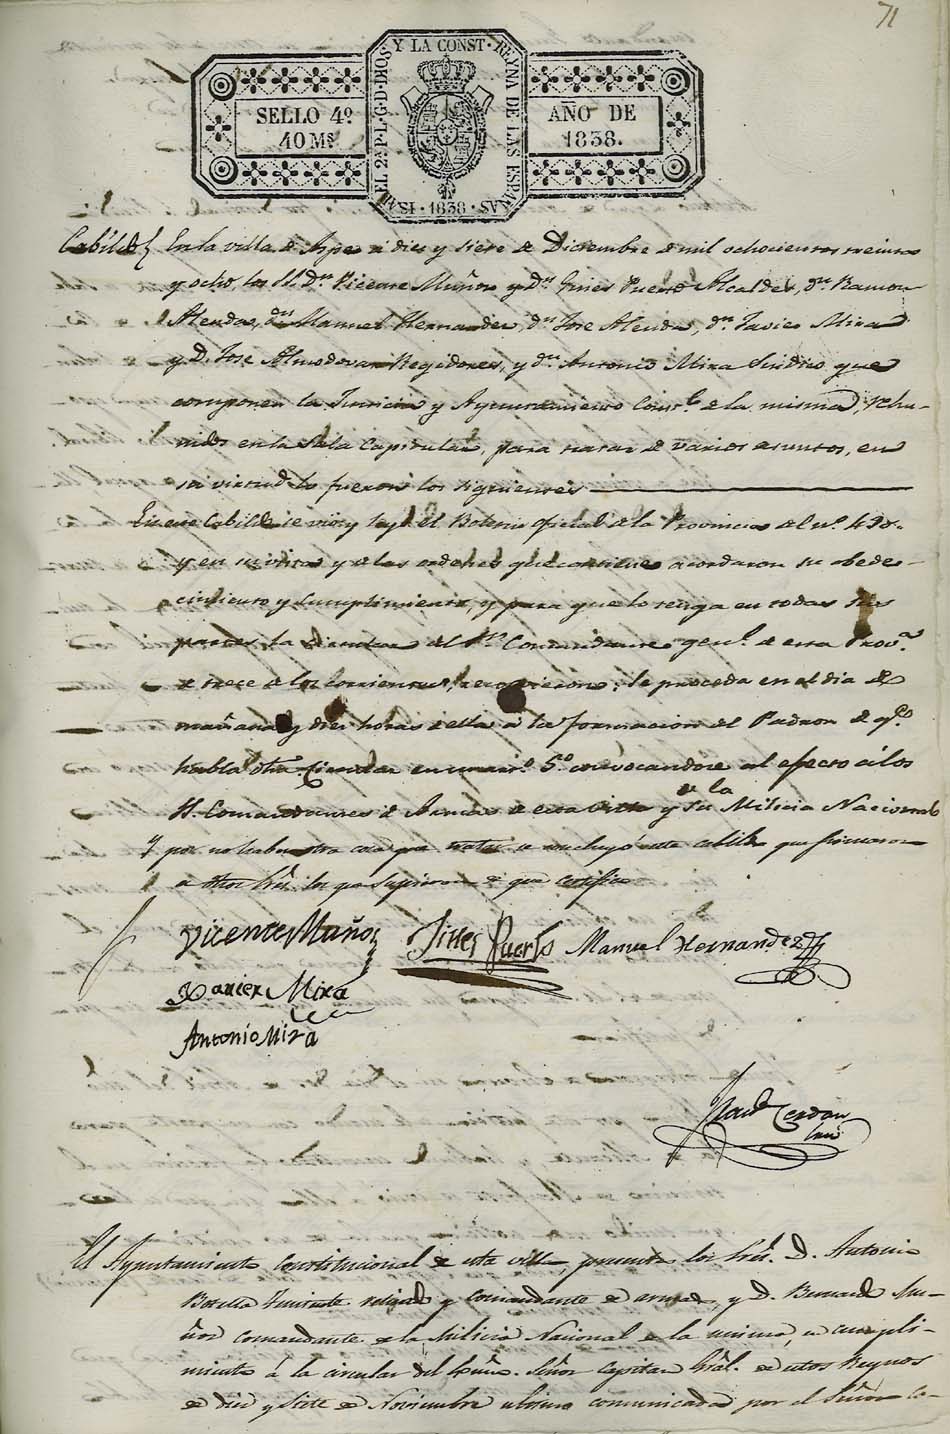 71
Y LA CONST. REYNA DE LAS ESPAÑAS
ISABEL 2ª P.L.G.D.DIOS
SELLO 4º
40 Ms
AÑO DE
1838.
1838
Cabildo En la villa de Aspe a dies y siete de Diciembre de mil ochocientos treinta
y ocho, los SS. Dn. Vicente Muñoz y Dn. Gines Puerto Alcaldes, Dn. Ramon
Alenda, Dn. Manuel Hernandez, Dn. Jose Alenda, Dn. Javier Mira
y D. Jose Almodovar Regidores, y Dn. Antonio Mira Sindico que
componen la Justicia y Ayuntamiento Constl. de la misma, rehu-
nidos en la Sala Capitular, para tratar de varios asuntos, en
su virtud lo fueron los siguientes
En este Cabildo se vio y leyó el Boletin oficial de la Provincia del nº. 490.
y en su vista y de las ordenes que contiene acordaron su obede-
cimiento y cumplimiento, y para que lo tenga en todas sus
partes la circular del Sr. Comandante genl. de esta Prova.
de trece de los corrientes, se proceda en el dia de
mañana y diez horas de ella a la formacion del Padron de qe.
habla otra Circular en un artº. 5º. convocandose al efecto á los
SS. Comandantes de Armas de esta villa y de la Milicia Nacional
Y por no haber otra cosa que tratar se concluyó este cabildo que firmaron
otros Sres. los que supieron de que certifico
Vicente Muñoz Gines Puerto Manuel Hernandez
Xavier Mira
Antonio Mira
Cerdan
Srio
El Ayuntamiento Constitucional de esta villa, presentes los Sres. D. Antonio
Botella Teniente retirado y comandante de armas, y D. Bernardo Mu-
ñoz comandante de la Milicia Nacional de la misma, en cumpli-
miento á la circular del Exmo. Señor Capitan Gral. de estos Reynos
de diez y siete de Noviembre ultimo comunicada por el Señor Co-